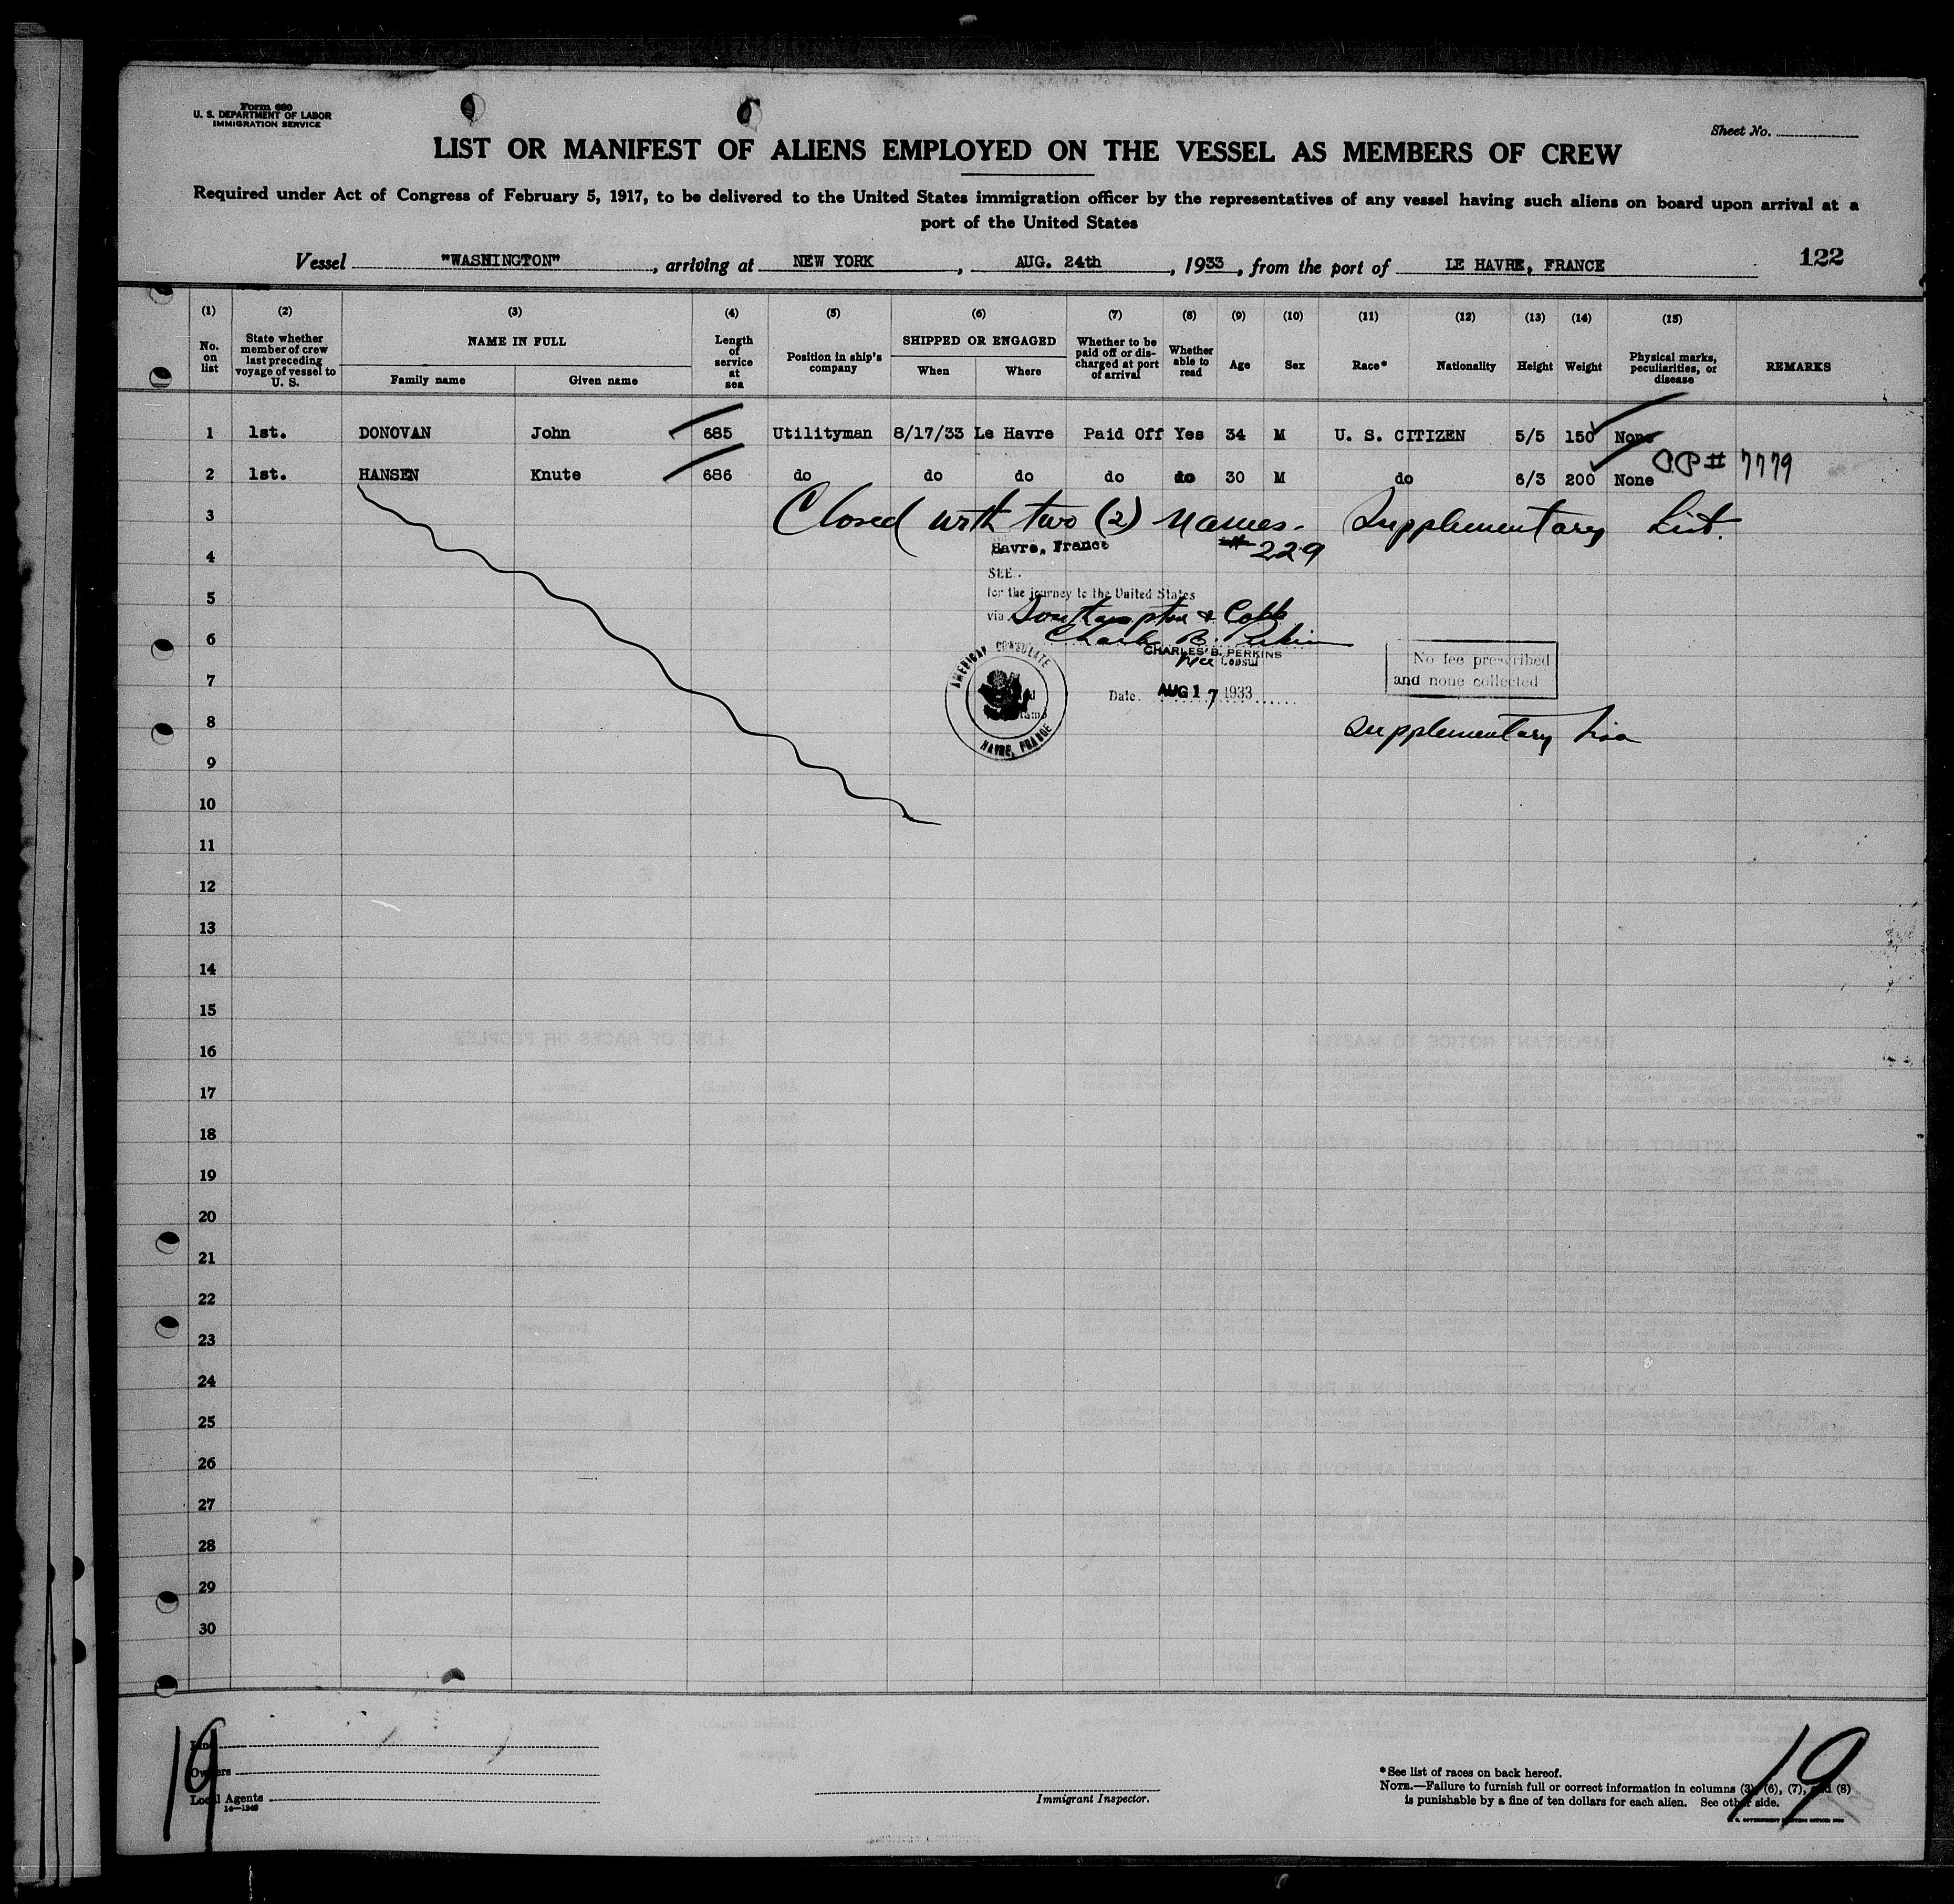 Form 680
U. S. DEPARTMENT OF LABOR
IMMIGRATION SERVICE
Sheet No.
LIST OR MANIFEST OF ALIENS EMPLOYED ON THE VESSEL AS MEMBERS OF CREW
Required under Act of Congress of February 5, 1917, to be delivered to the United States immigration officer by the representatives of any vessel having such aliens on board upon arrival at a
port of the United States
Vessel "WASHINGTON", arriving at NEW YORK, AUG. 24th, 1933, from the port of LE HAVRE, FRANCE 122
(1) (2) (3) (4) (5) (6) (7) (8) (9) (10) (11) (12) (13) (14) (15)
No. on list
State whether member of crew last preceding voyage of vessel to U. S.
NAME IN FULL
Family name Given name
Length of service at sea
Position in ship's company
SHIPPED OR ENGAGED
When Where
Whether to be paid off or discharged at port of arrival
Whether able to read
Age Sex Race* Nationality Height Weight
Physical marks, peculiarities, or disease
REMARKS
1 1st. DONOVAN John 685 Utilityman 8/17/33 Le Havre Paid Off Yes 34 M U. S. CITIZEN 5/5 150 None
2 1st. HANSEN Knute 686 do do do do do 30 M do 6/3 200 None 7779
3 Closed with two (2) names. Supplementary List.
Havre, France # 229
4
SEE
5 for the journey to the United States
via Southampton & Cobh
6 Charles B. Perkins
CHARLES B. PERKINS
Vice Consul
No fee prescribed
and none collected
AMERICAN CONSULATE
HAVRE, FRANCE
7 Date. AUG 17 1933
8 Supplementary
9
10
11
12
13
14
15
16
17
18
19
20
21
22
23
24
25
26
27
28
29
30
19
Line
Owners
Local Agents
14—1240
Immigrant Inspector.
*See list of races on back hereof.
NOTE.—Failure to furnish full or correct information in columns (3), (6), (7), and (8)
is punishable by a fine of ten dollars for each alien. See other side.
19